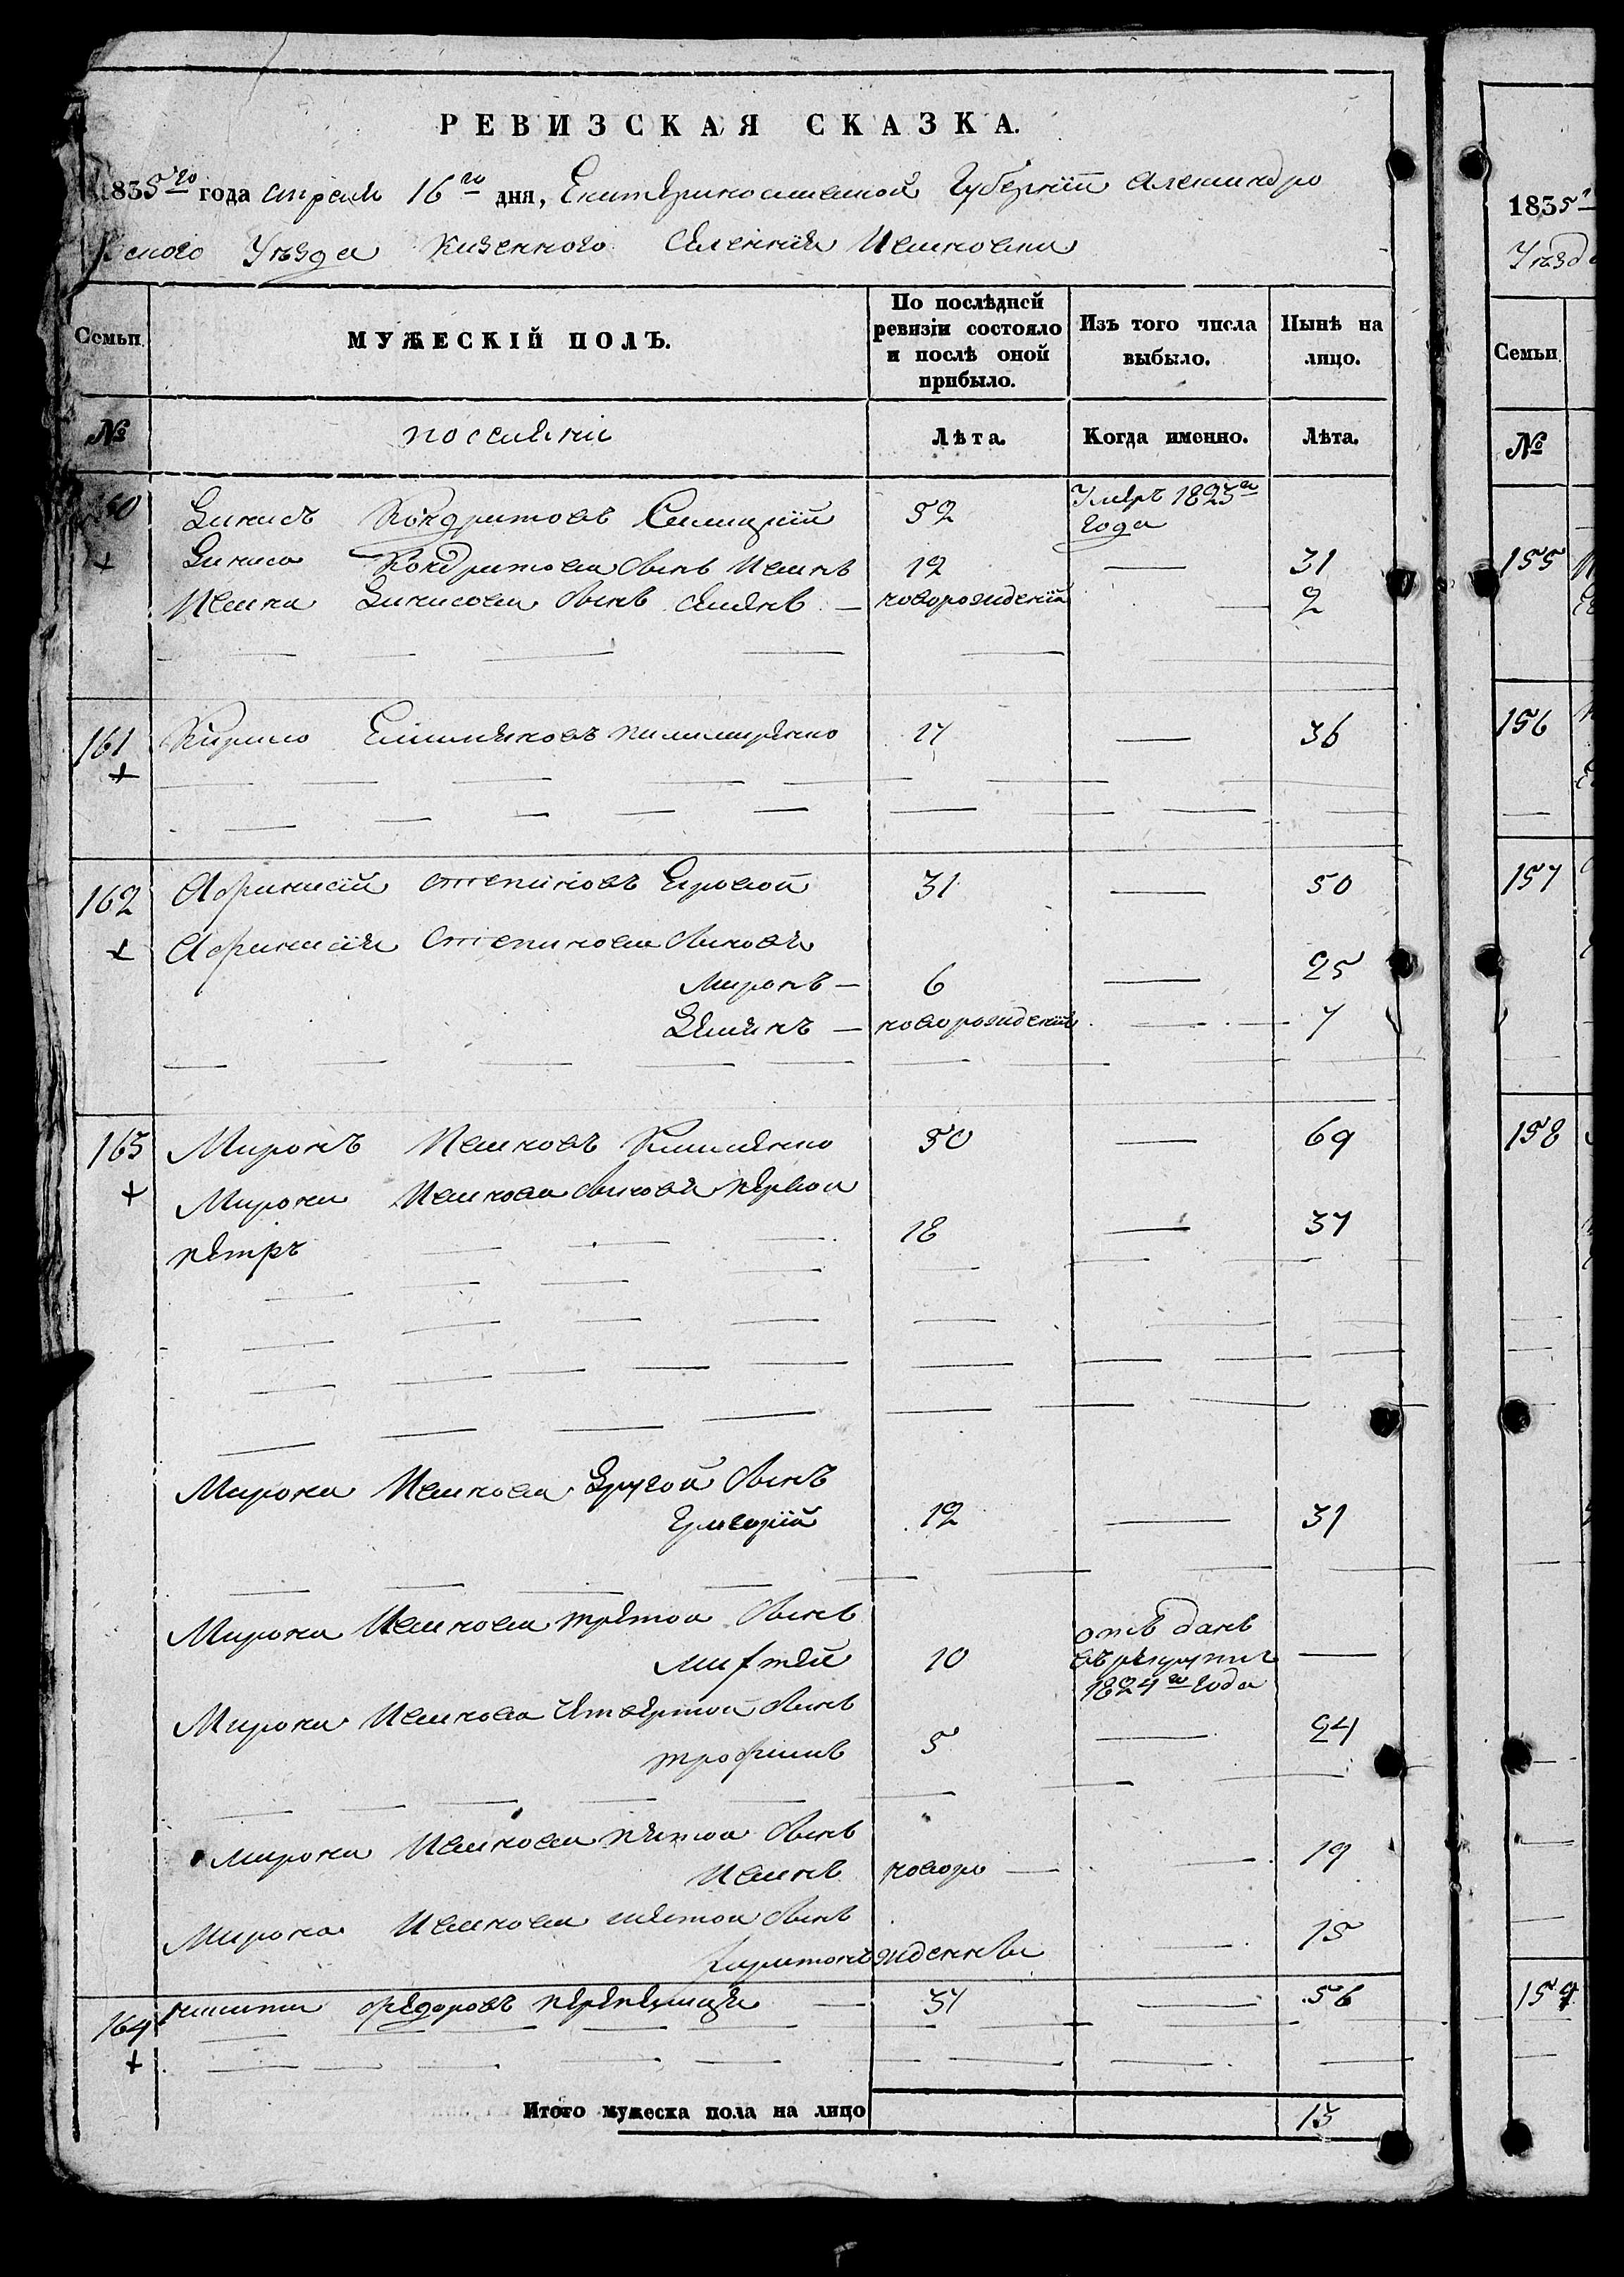 РЕВИЗСКАЯ СКАЗКА.
1835го года апреля 16го дня, Екатеринославской Губернїи Александро
вского Уезда Казенного Селенїя Ивановки
Семьи.
МУЖЕСКІЙ ПОЛЪ.
По послѣдней ревизіи состояло и послѣ оной прибыло.
Изъ того числа выбыло.
Нынѣ на лицо.
№
поселяне
Лѣта.
Когда именно.
Лѣта.
160 Дикисъ Кондратовъ 52 Умеръ 1823го года
Кондратова Сынъ Иванъ 12 — 31
Ивана Сынъ Семенъ — новорожденїй — 2
161 Кирило Емельяновъ 17 — 36
162 Афанасїй Степановъ 31 — 50
Афанасїя Степанова Сыновя
Миронъ — 6 — 25
Демянъ — новорожденїй — 7
163 Миронъ Ивановъ 50 — 69
Мирона Иванова Сыновя первой
петръ 18 — 37
Мирона Иванова Другой Сынъ
Григорїй 12 — 31
Мирона Иванова третой Сынъ
матвей 10 отъ данъ въ рекруты 1824го года —
Мирона Иванова Четвертой Сынъ
трофимъ 5 — 24
Мирона Иванова пятой Сынъ
Иванъ новоро — — 19
Мирона Иванова шестой Сынъ
харитонъ жденнѣ — 15
164 никита федоровъ — 37 — 56
Итого мужеска пола на лицо 13
1835
Уезда
Семьи
№
155
156
157
158
159